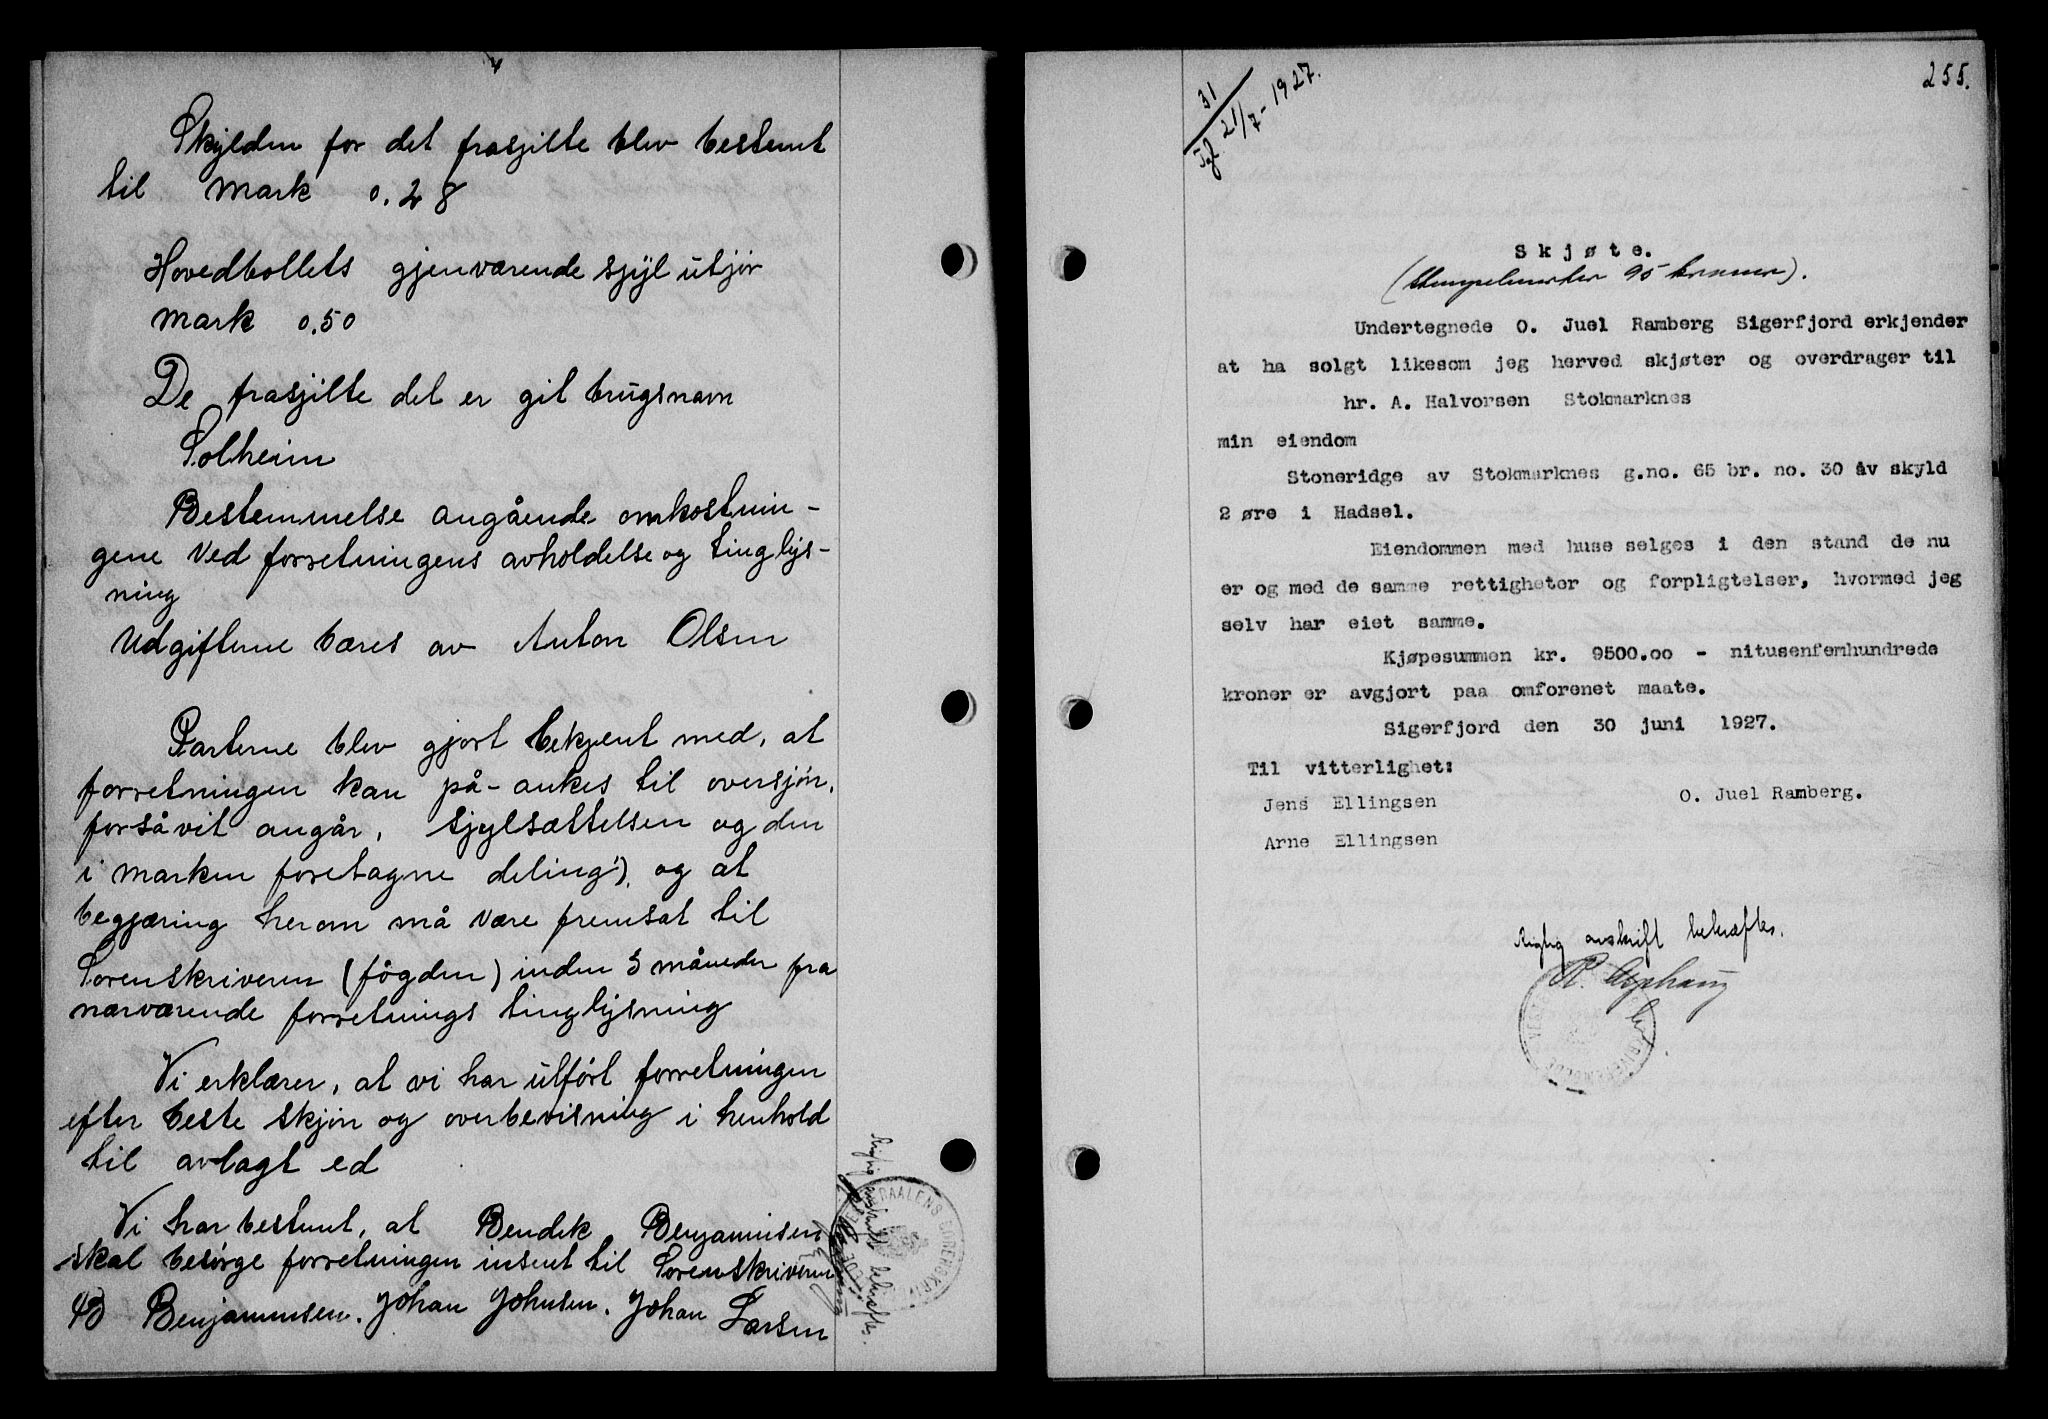 Skylden for det frasjilte blev bestemt
til mark 0.28
Hovedbollets gjenværende sjyl utjör
mark 0.50
De frasjilte det er git brugsnavn
Solheim
Bestemmelse angående omkostnin-
gene ved forretningens avholdelse og tinglys-
ning
Udgifterne bæres av Anton Olsen
Parterne blev gjort bekjent med, at
forretningen kan på-ankes til oversjön,
forsåvit angår, sjylsættelsen og den
i marken foretagne deling), og at
begjæring herom må være fremsat til
Sorenskriveren (fôgden) inden 3 måneder fra
nærværende forretnings tinglysning
Vi erklærer, at vi har utfört forretningen
efter beste skjön og overbevisning i henhold
til avlagt ed
Vi har bestemt, at Bendik Benjaminsen
skal besörge forretningen insent til Sorenskriveren
B Benjaminsen. Johan Johnsen. Johan Larsen
Rigtig avskrift bekræftes.
255.
31
Tgl 21/7-1927.
Skjøte.
(Stempelmerker 95 kroner).
Undertegnede O. Juel Ramberg Sigerfjord erkjender
at ha solgt likesom jeg herved skjøter og overdrager til
hr. A. Halvorsen Stokmarknes
min eiendom
Stoneridge av Stokmarknes g.no. 65 br. no. 30 av skyld
2 øre i Hadsel.
Eiendommen med huse selges i den stand de nu
er og med de samme rettigheter og forpligtelser, hvormed jeg
selv har eiet samme.
Kjøpesummen kr. 9500.00 - nitusenfemhundrede
kroner er avgjort paa omforenet maate.
Sigerfjord den 30 juni 1927.
Til vitterlighet:
Jens Ellingsen
O. Juel Ramberg.
Arne Ellingsen
Rigtig avskrift bekræftes.